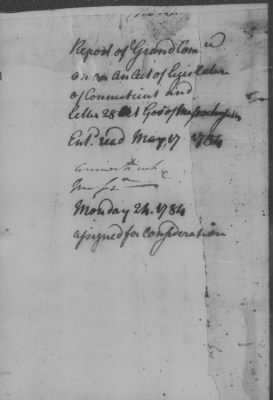 Report of Grand Comee
on an Act of Legislature
of Connecticut and
letter 28 Oct Govr of Massachusetts
Ent. read May, 17 1784
Monday 24. 1784
assigned for consideration